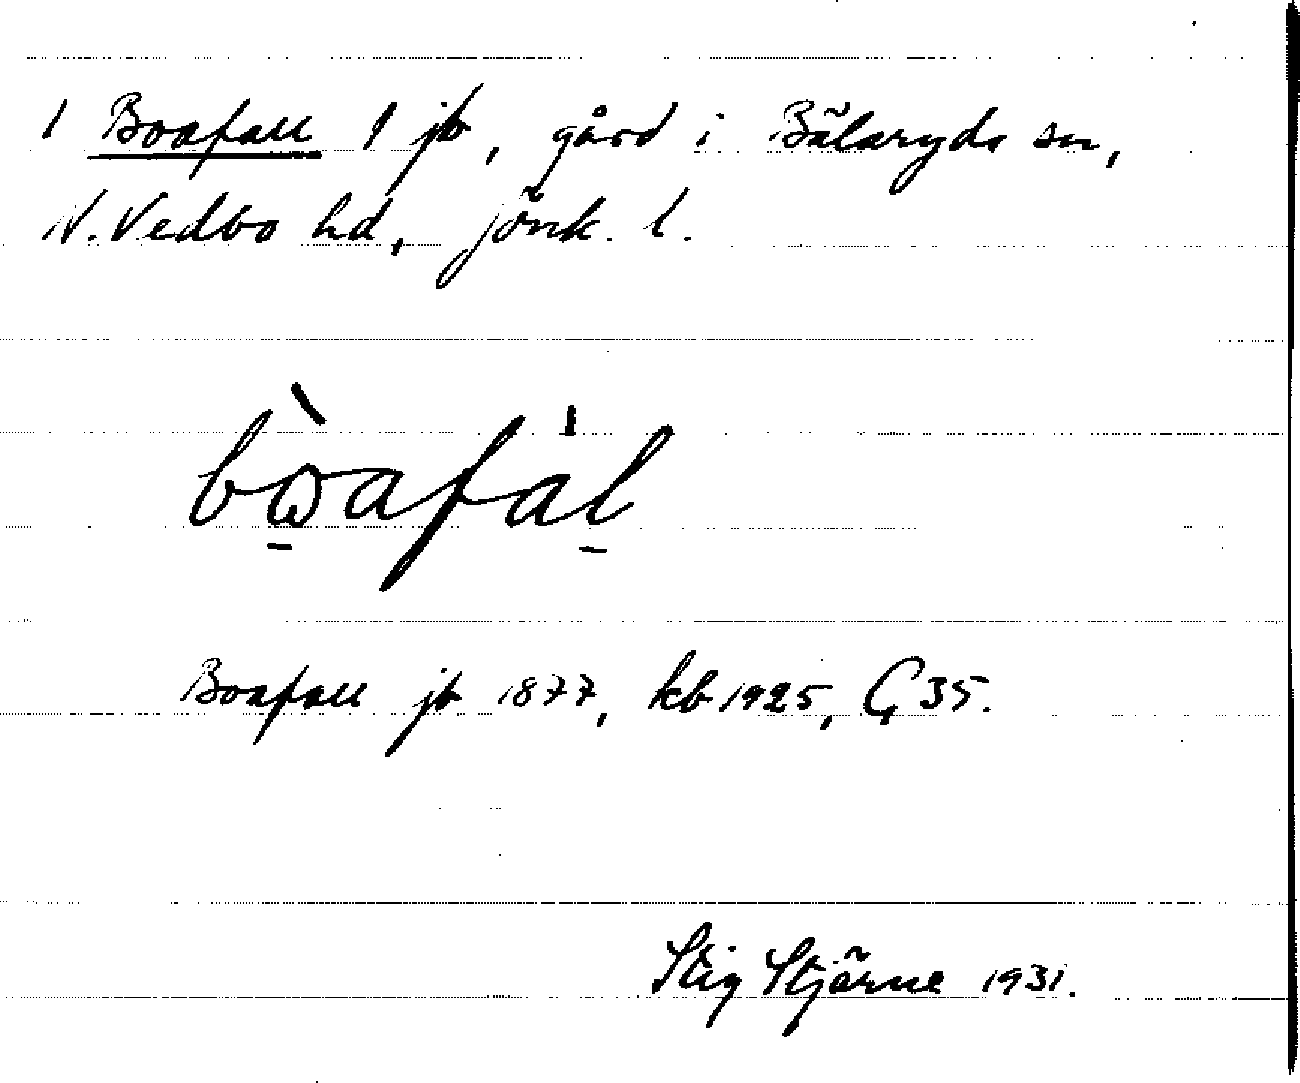 1 Boafall 1 jb, gård i Bälaryds sn,
N. Vedbo hd, Jönk. l.
bòafál
Boafall jb 1877, kb 1925, G 35.
Stig Stjärne 1931.